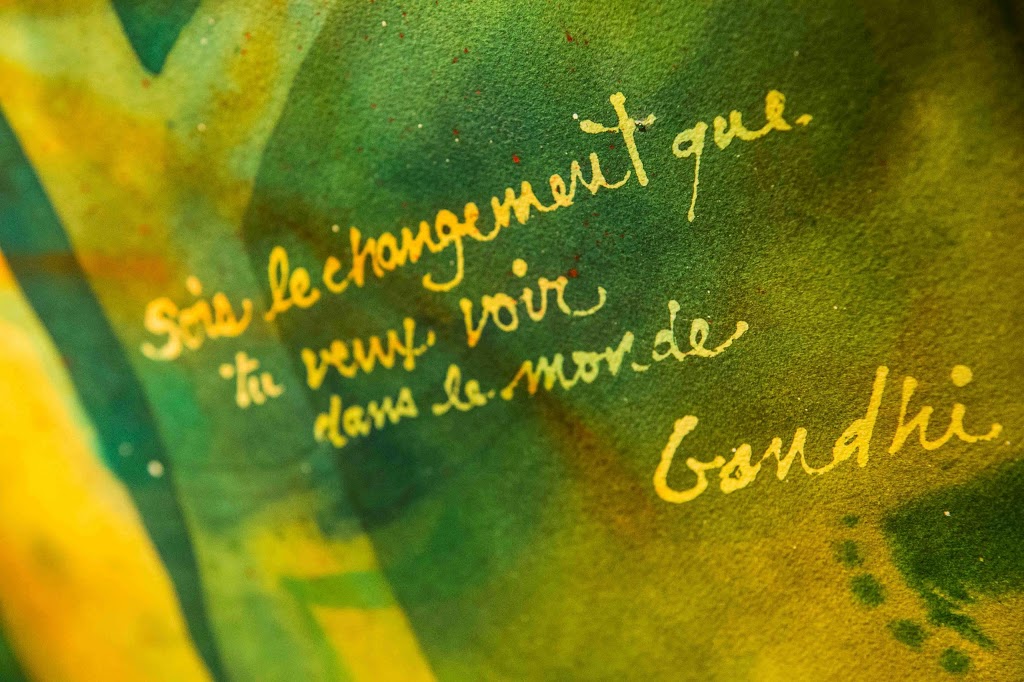 sois le changement que
tu veux voir
dans le monde
Gandhi